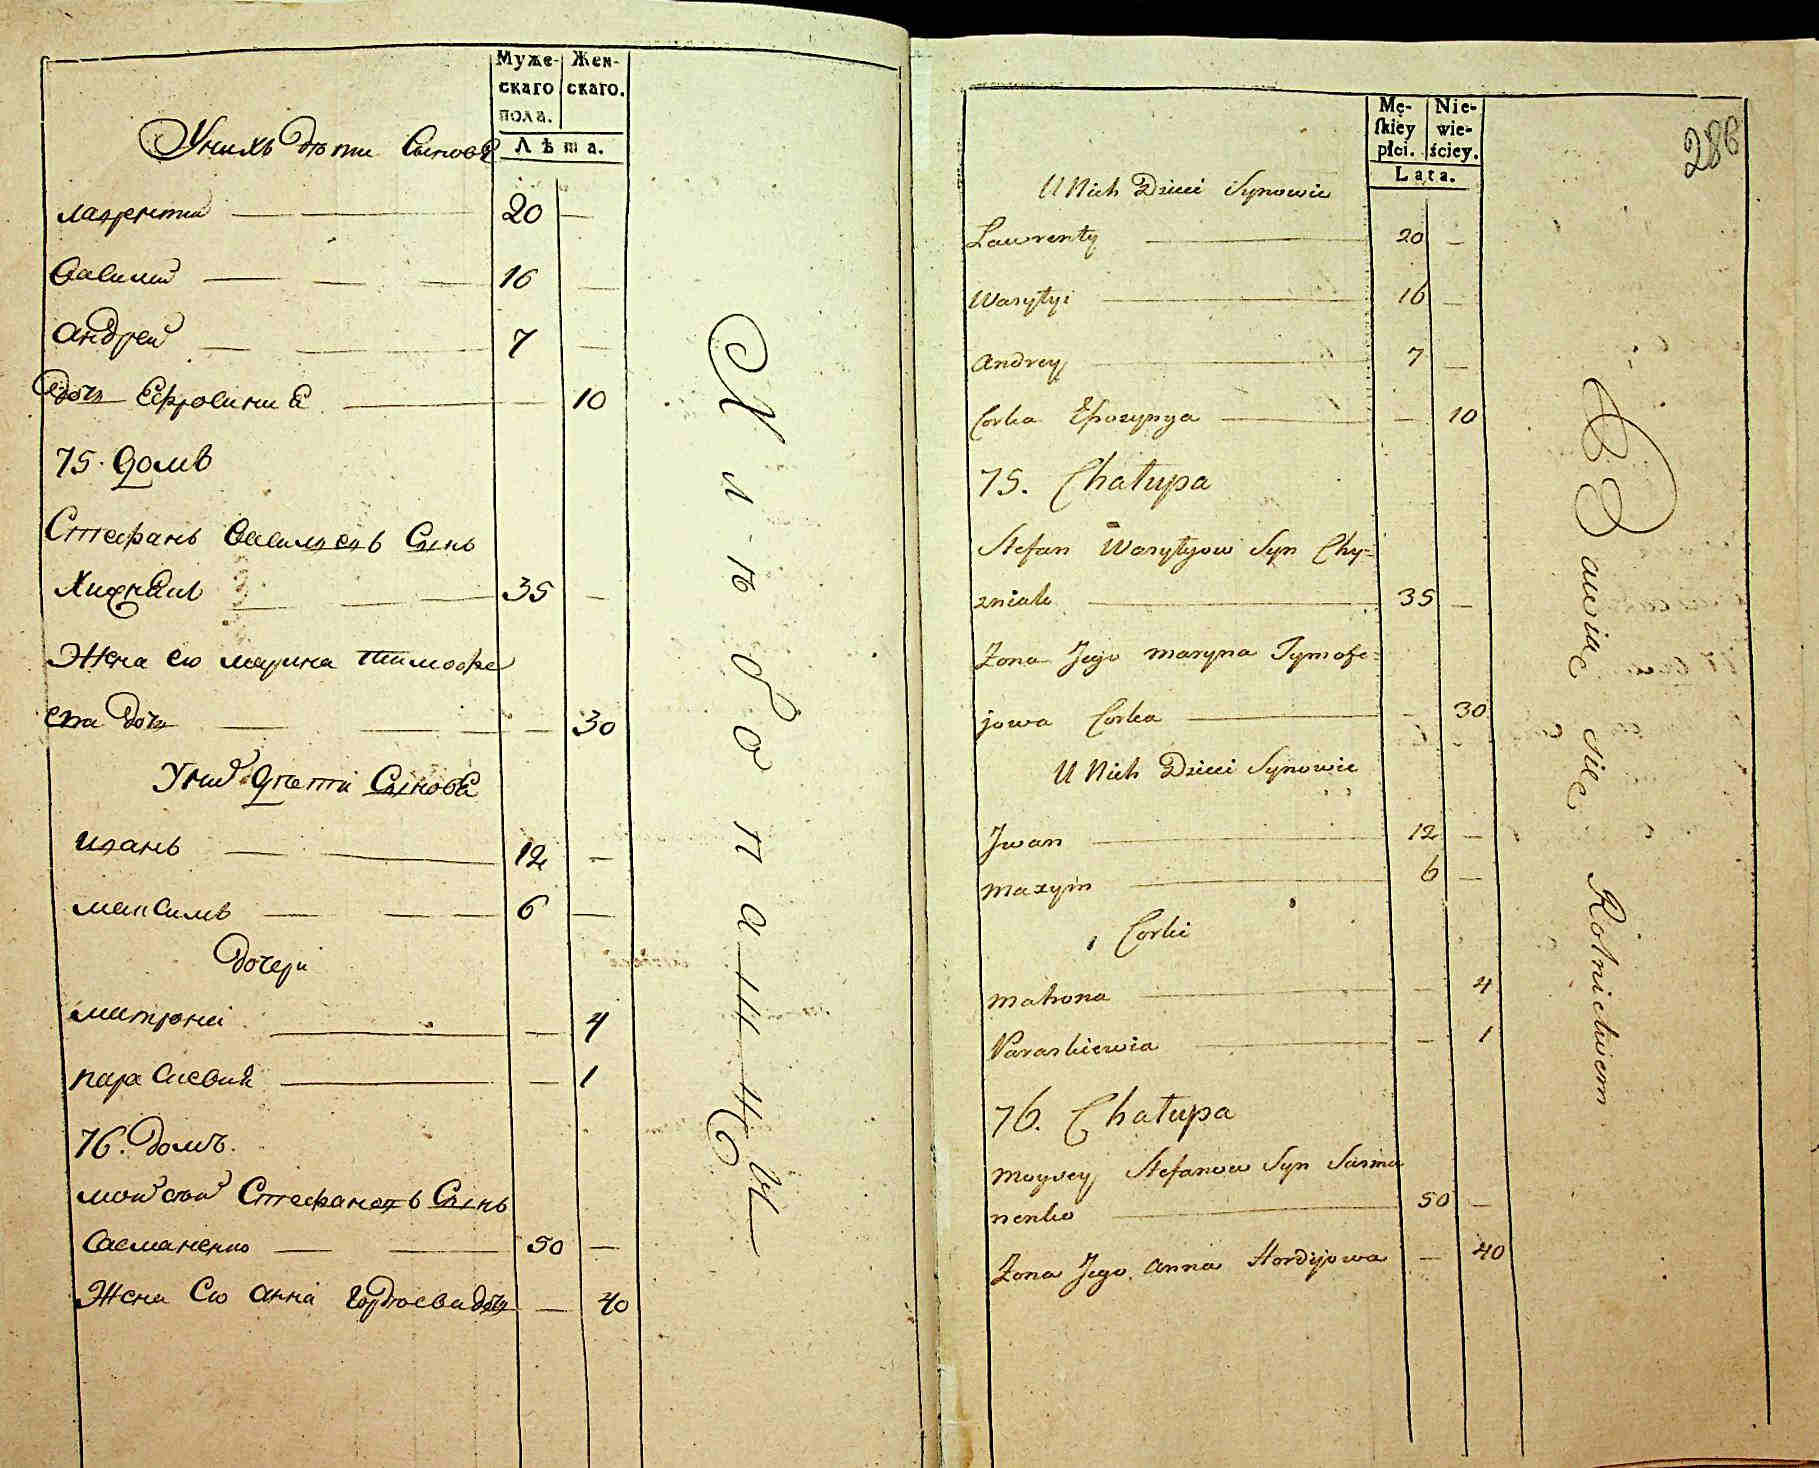 Муже-
скаго
пола.
Жен-
скаго.
Лѣта.
Унихъ Дѣти Сыновя
лаврентии 20 —
Василий 16 —
андрей 7 —
Дочь Ефросиния — 10
75. Домъ
Стефанъ Василиевъ Сынъ
Хижнякъ 35 —
Жена его марина тимофе
ева Дочь — 30
Уних Дети Сыновя
иванъ 12 —
максимъ 6 —
Дочери
матрона — 4
параскевия — 1
76. Домъ.
мойсей Стефановъ Сынъ
Сасманенко 50 —
Жена Его анна гордиева дочь — 40
Хлѣбопашцы
Mę-
skiey
płci.
Nie-
wie-
ściey.
Lata.
286
U Nich Dzieci Synowie
Lawrenty 20 —
Wasyłyi 16 —
Andrey 7 —
Corka Efrozynya — 10
75. Chałupa
Stefan Wasyłyow Syn Chy=
zniak 35 —
Zona Jego maryna Tymofe=
jowa Corka — 30
U Nich Dzieci Synowie
Jwan 12 —
maxym 6 —
Corki
matrona — 4
Paraskiewia — 1
76. Chałupa
moysey Stefanow Syn Sasma
nenko 50 —
Zona Jego Anna Hordijowa — 40
Bawiąc się Rolnictwem